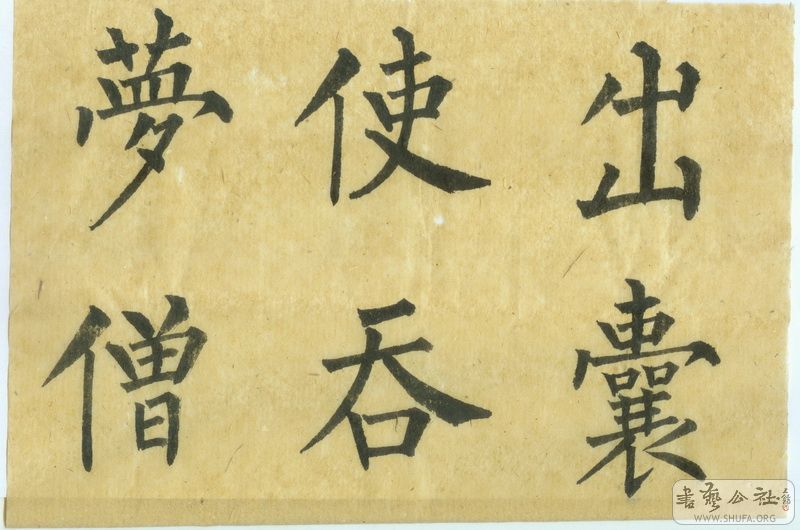 出囊
使吞
夢僧
書藝公社
WWW.SHUFA.ORG